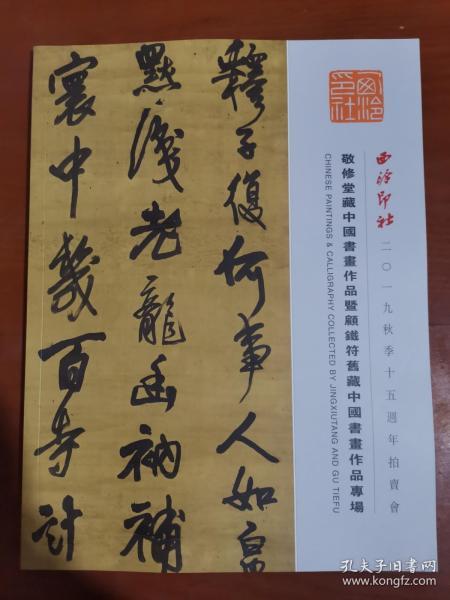 釋子復何事人如
點淺老龍
衲補
寰中幾百
計
西泠印社
西泠印社
二〇一九秋季十五週年拍賣會
敬修堂藏中國書畫作品暨顧鐵符舊藏中國書畫作品專場
CHINESE PAINTINGS & CALLIGRAPHY COLLECTED BY JINGXIUTANG AND GU TIEFU
孔夫子旧书网
www.kongfz.com